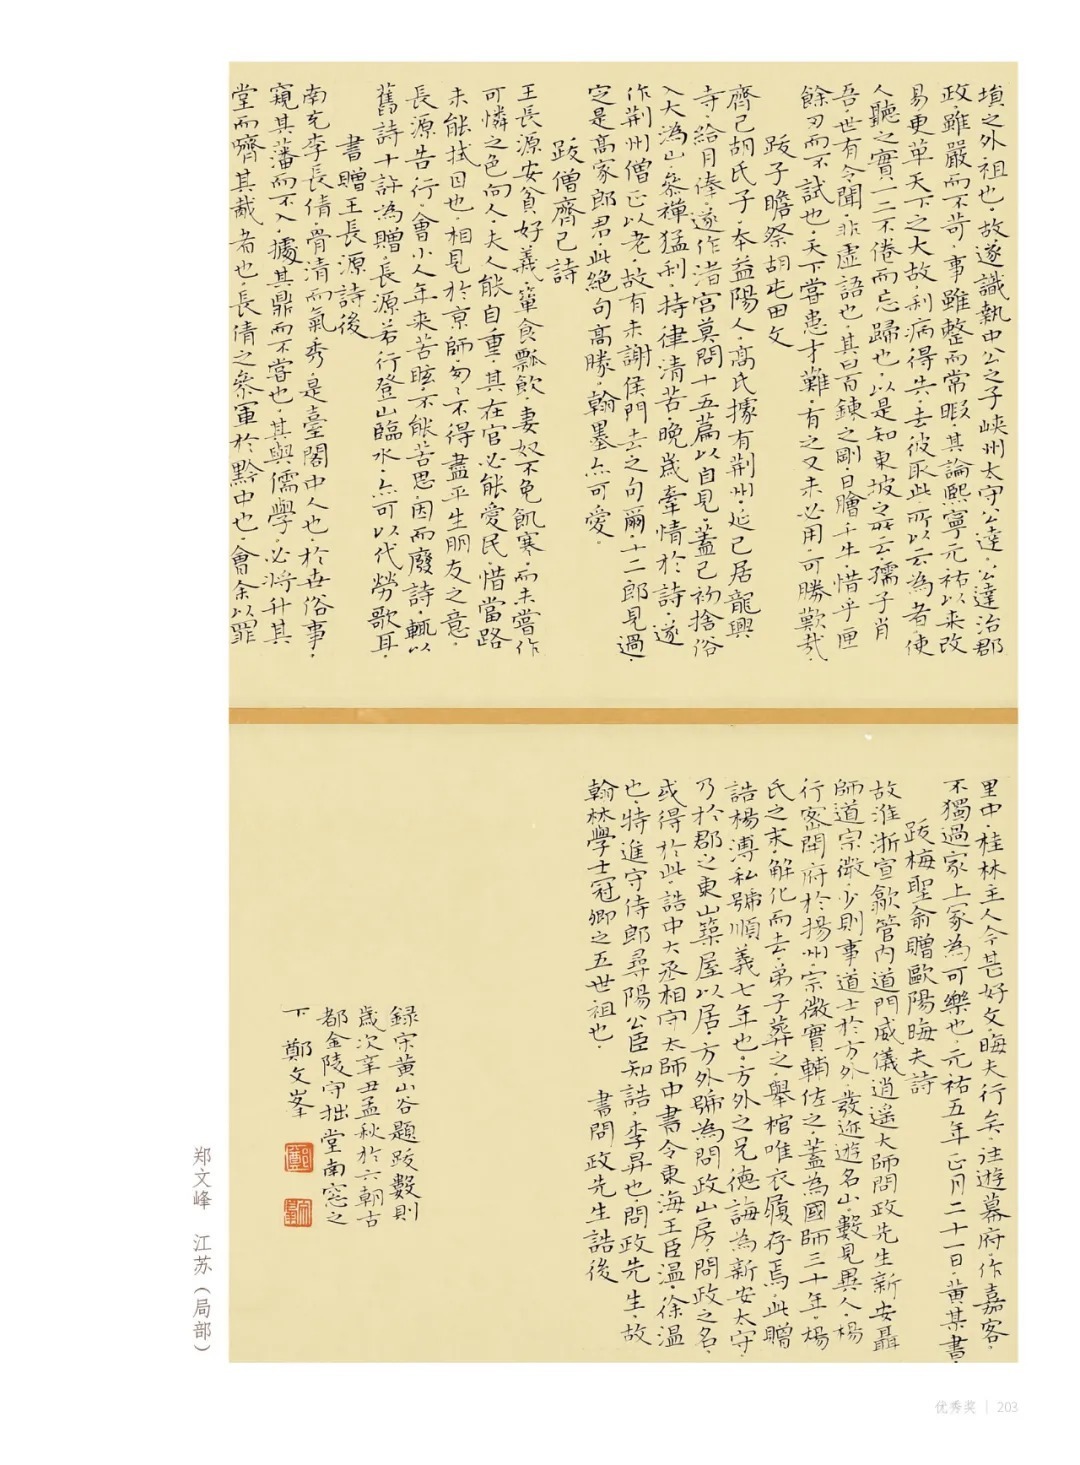 填之外祖也。故遂識執中公之子峡州太守公達。公達治郡
政。雖嚴而不苛。事雖整而常暇。其論熙寧元祐以来改
易更革天下之大故。利病得失。去彼取此。所以云為者。使
人聽之實一二不倦而忘歸也。以是知東坡之所云。孺子肖
吾。世有令聞。非虛語也。其曰百鍊之剛。日膾千牛。惜乎匣
餘刃而不試也。天下嘗患才難。有之又未必用。可勝歎哉。
跋子瞻祭胡屯田文
齊己胡氏子。本益陽人。高氏據有荆州。延己居龍興
寺。給月俸。遂作渚宮莫問十五篇以自見。蓋己初捨俗
入大溈山叅禪猛利。持律清苦。晚歲牽情於詩。遂
作荆州僧正以老。故有未謝侯門去之句爾。十二郎見過。
定是高家郎君。此絶句高勝。翰墨亦可愛。
跋僧齊己詩
王長源安貧好義。簞食瓢飲。妻奴不免飢寒。而未嘗作
可憐之色向人。夫人能自重。其在官必能愛民。惜當路
未能拭目也。相見於京師。匆匆不得盡平生朋友之意。
長源告行。會小人年来苦眩。不能苦思。因而廢詩。輒以
舊詩十許為贈。長源若行登山臨水。亦可以代勞歌耳。
書贈王長源詩後
南充李長倩。骨清而氣秀。是臺閣中人也。於世俗事。
窺其藩而不入。據其鼎而不嘗也。其與儒學。必將升其
堂而嚌其胾者也。長倩之叅軍於黔中也。會余以罪
里中。桂林主人今甚好文。晦夫行矣。往遊幕府。作嘉客。
不獨過家上冢為可樂也。元祐五年正月二十一日。黄某書。
跋梅聖俞贈歐陽晦夫詩
故淮浙宣歙管内道門威儀逍遥大師問政先生新安聶
師道宗微。少則事道士於方外。發迹遊名山。數見異人。楊
行密開府於揚州。宗微實輔佐之。蓋為國師三十年。楊
氏之末。解化而去。弟子葬之。舉棺唯衣履存焉。此贈
誥楊溥私號順義七年也。方外之兄德誨為新安太守。
乃於郡之東山築屋以居。方外號為問政山房。問政之名。
或得於此。誥中大丞相守太師中書令東海王臣溫。徐溫
也。特進守侍郎尋陽公臣知誥。李昇也。問政先生。故
翰林學士冠卿之五世祖也。 書問政先生誥後
録宋黄山谷題跋數則
歲次辛丑孟秋於六朝古
都金陵守拙堂南窓之
下 鄭文峯
郑文峰 江苏（局部）
优秀奖 | 203